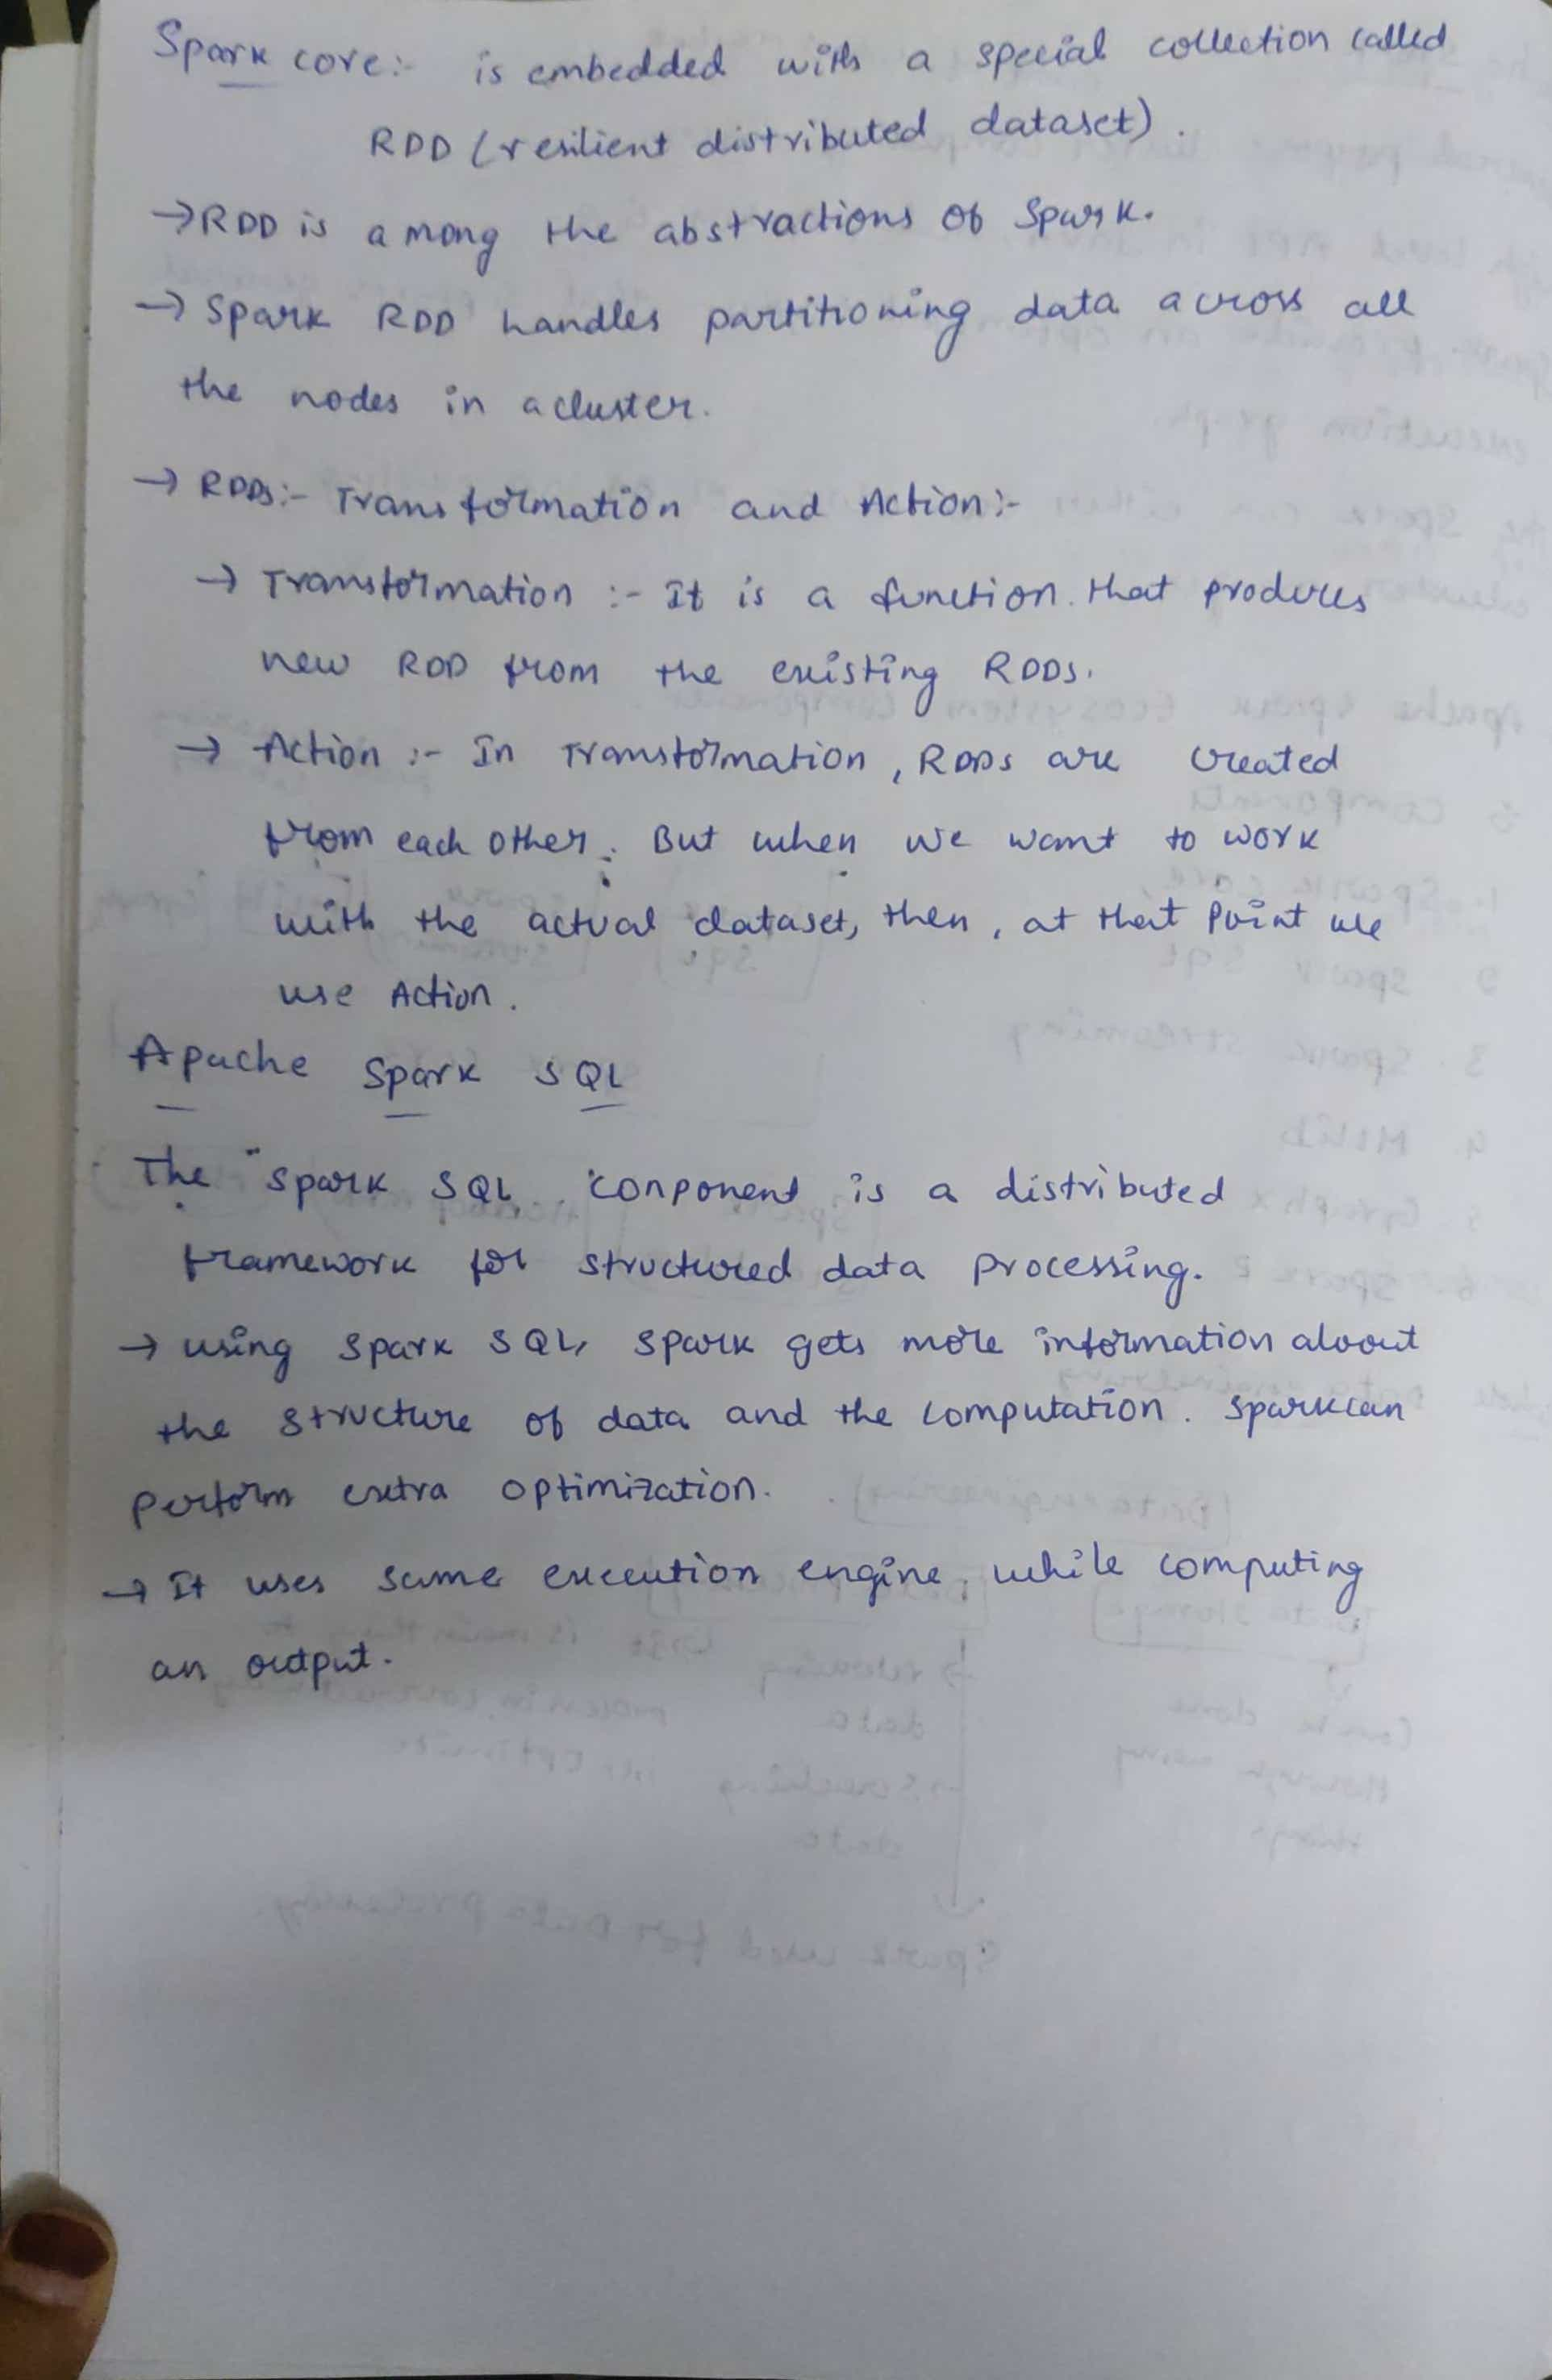 Spark core:- is embedded with a special collection called
RDD (resilient distributed dataset).
→RDD is among the abstractions of Spark.
→ Spark RDD handles partitioning data across all
the nodes in a cluster.
→ RDDs:- Transformation and Action:-
→ Transformation :- It is a function that produces
new RDD from the existing RDDs.
→ Action :- In Transformation, RDDs are created
from each other. But when we want to work
with the actual dataset, then, at that point we
use Action.
Apache Spark SQL
The Spark SQL conponent is a distributed
framework for structured data processing.
→ using Spark SQL, Spark gets more information about
the structure of data and the computation. Spark can
perform extra optimization.
→ It uses same execution engine, while computing
an output.